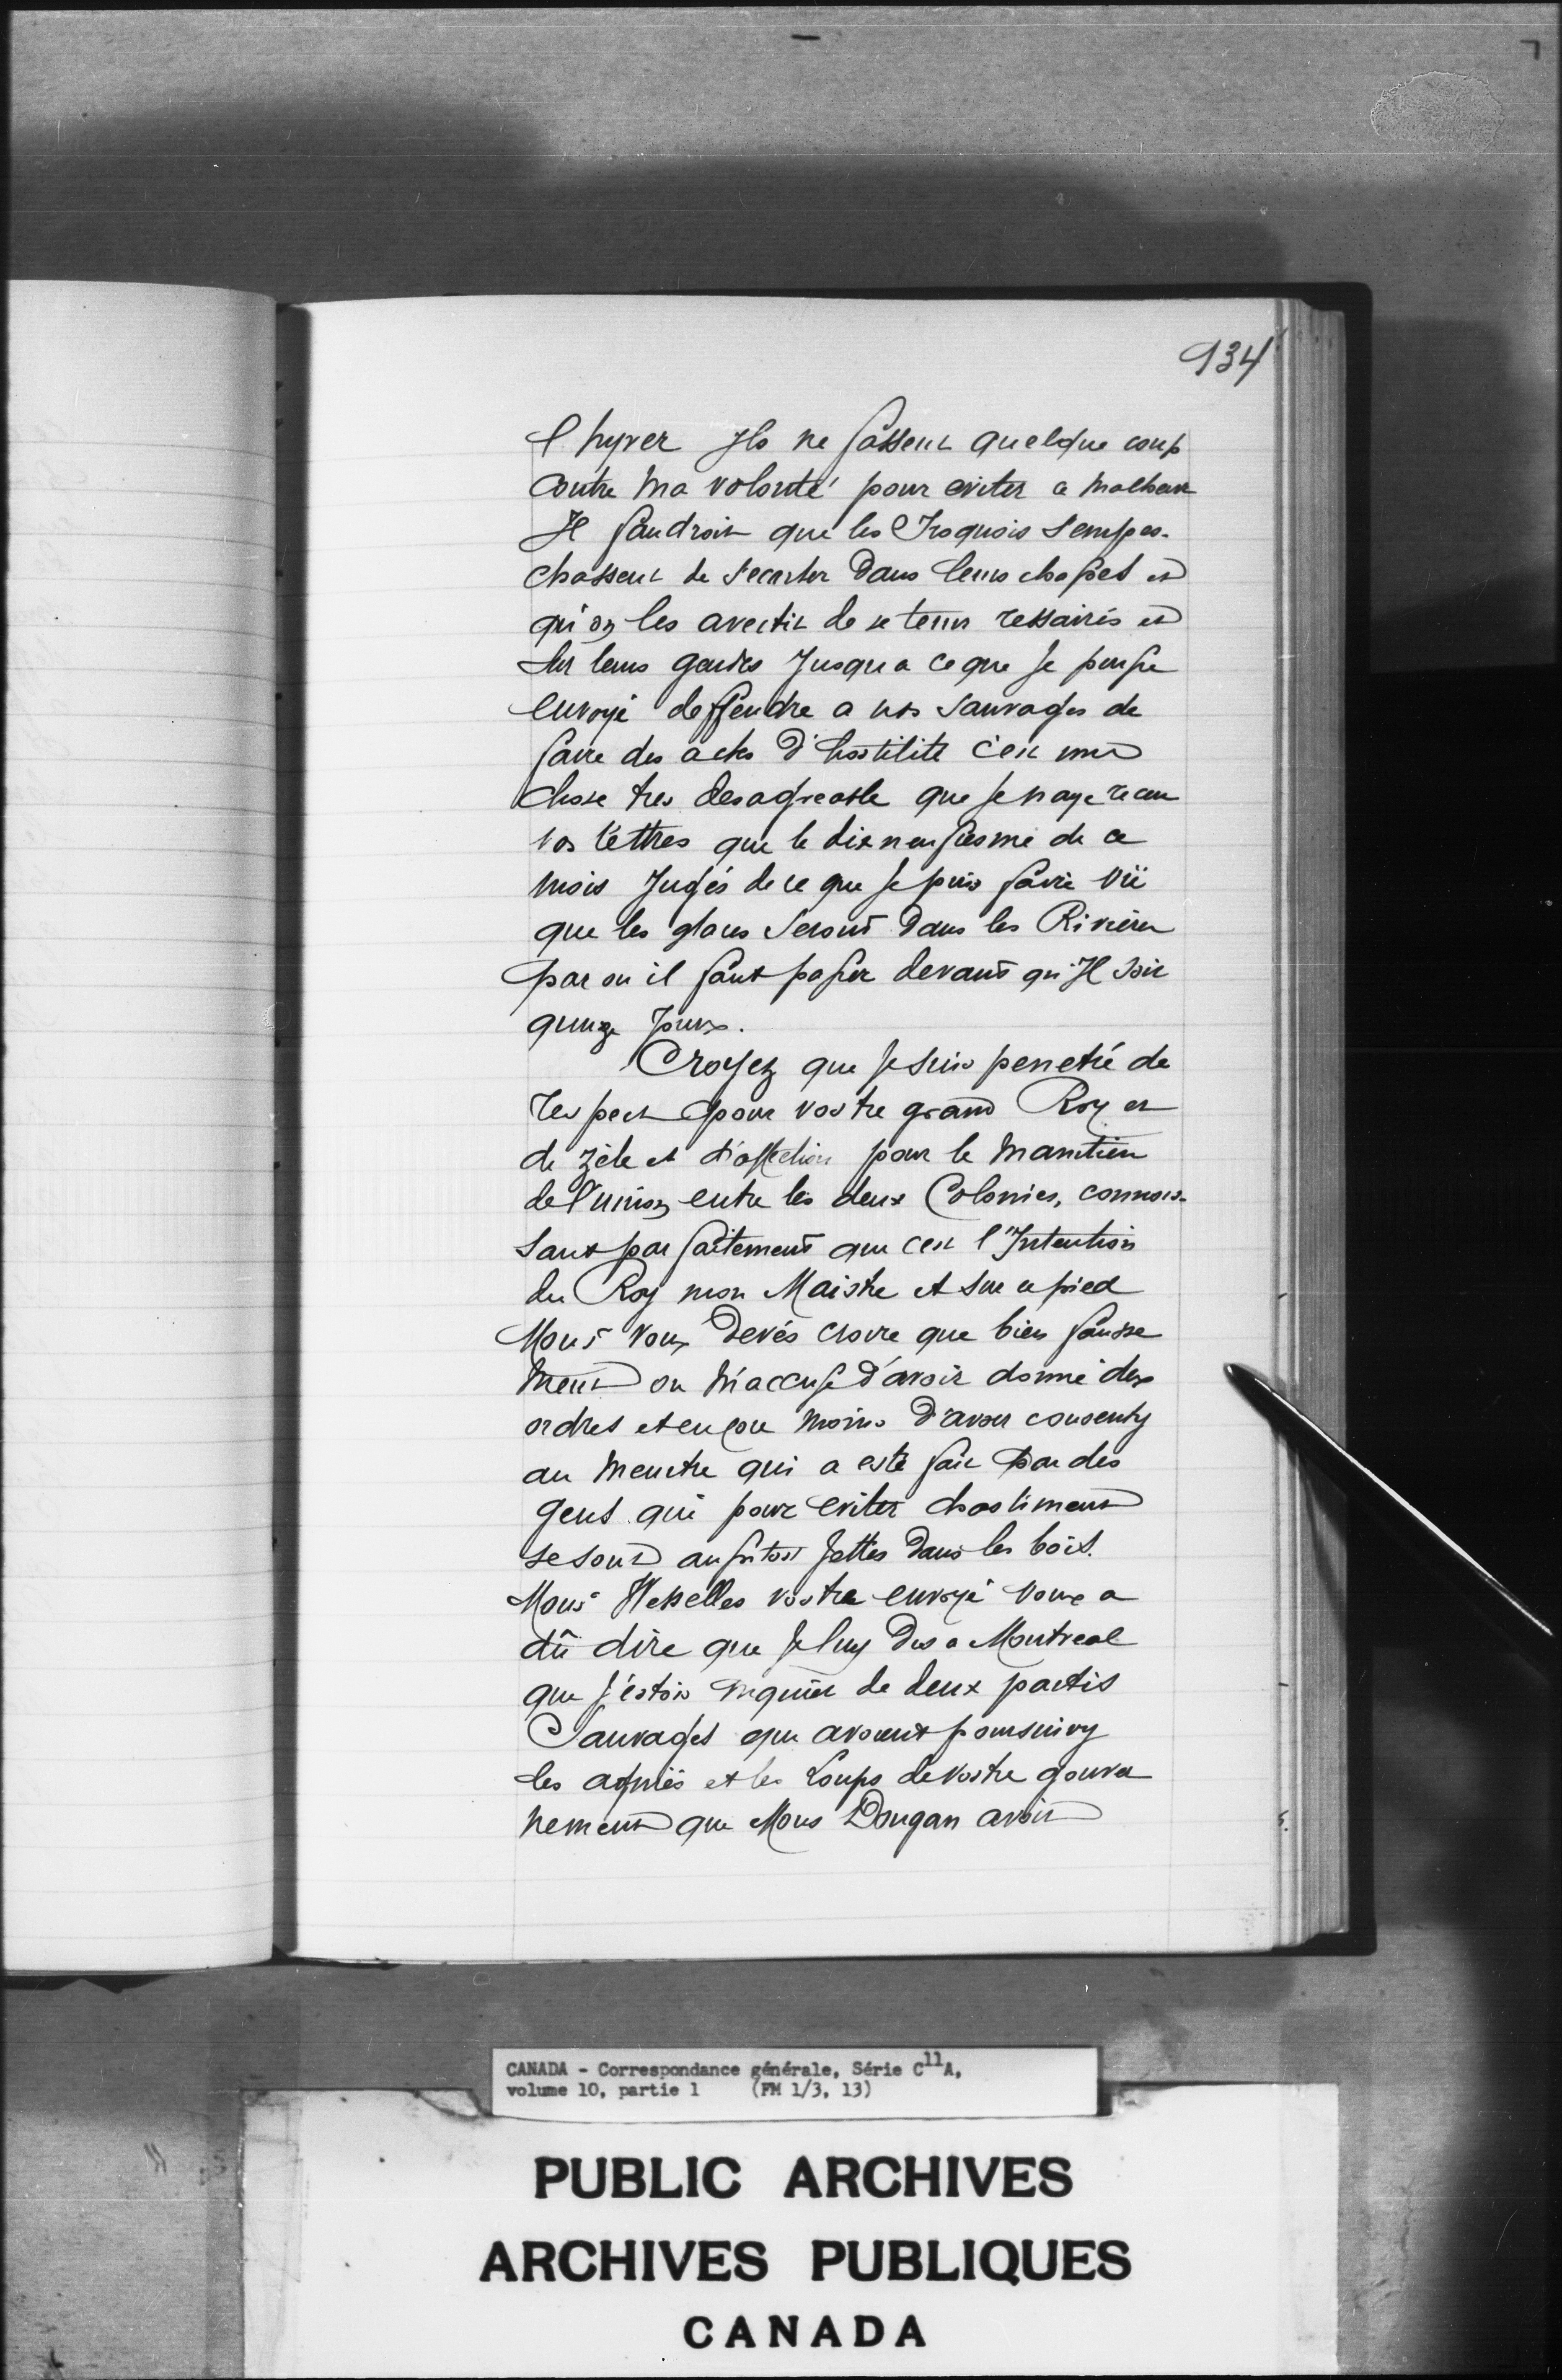 934
l'hyver Ils ne fassent quelque coup
contre ma volonté pour eviter ce malheur
Il faudroit que les Iroquois s'empes-
chassent de s'ecarter dans leurs chasses et
qu'on les avertit de se tenir ressairrés et
sur leurs gardes Jusqu a ce que Je puisse
envoyé deffendre a nos sauvages de
faire des actes d'hostilité c'est une
chose tres desagreable que Je n'aye receu
vos lettres que le dixneufiesme de ce
mois Jugés de ce que Je puis faire vü
que les glaces seront dans les Rivieres
par ou il faut passer devant qu'Il soit
quinze Jours.
Croyez que Je suis penetré de
respect pour vostre grand Roy et
de zèle et d'affection pour le maintien
de l'union entre les deux Colonies, connois-
sant parfaitement que c'est l'Intention
du Roy mon Maistre et sur ce pied
Mons^r vous devés croire que bien fausse
ment on m'accuse d'avoir donné des
ordres et encore moins d'avoir consenty
au meurtre qui a esté fait par des
gens qui pour eviter chastiment
se sont aussitost Jettés dans les bois.
Mons^r Wesselles vostre envoyé vous a
dû dire que Je luy dis a Montreal
que J'estois inquiet de deux partis
Sauvages qui avoient poursuivy
les agniés et les Loups de vostre gouver
nement que Mons Dongan avoit
CANADA - Correspondance générale, Série C11A,
volume 10, partie 1 (FM 1/3, 13)
PUBLIC ARCHIVES
ARCHIVES PUBLIQUES
CANADA